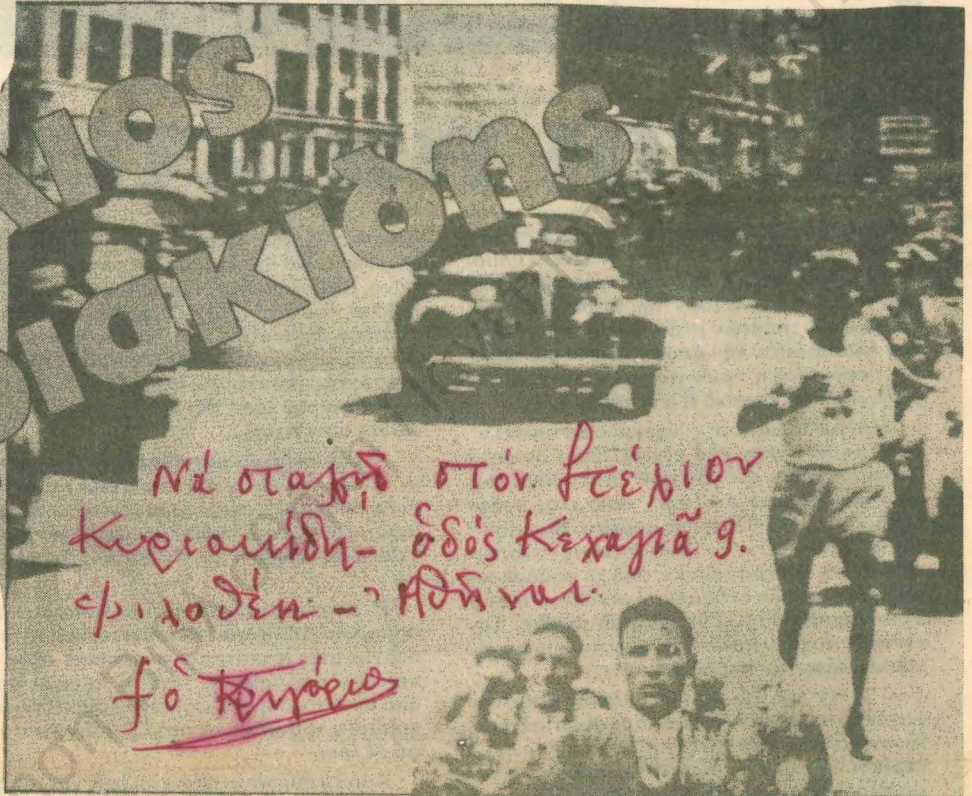 λιος
ριακίδης
Νά σταλῇ στόν Στέλιον
Κυριακίδη - ὁδός Κεχαγιᾶ 9.
Φιλοθέη - Ἀθῆναι.
† ὁ Γρηγόριος